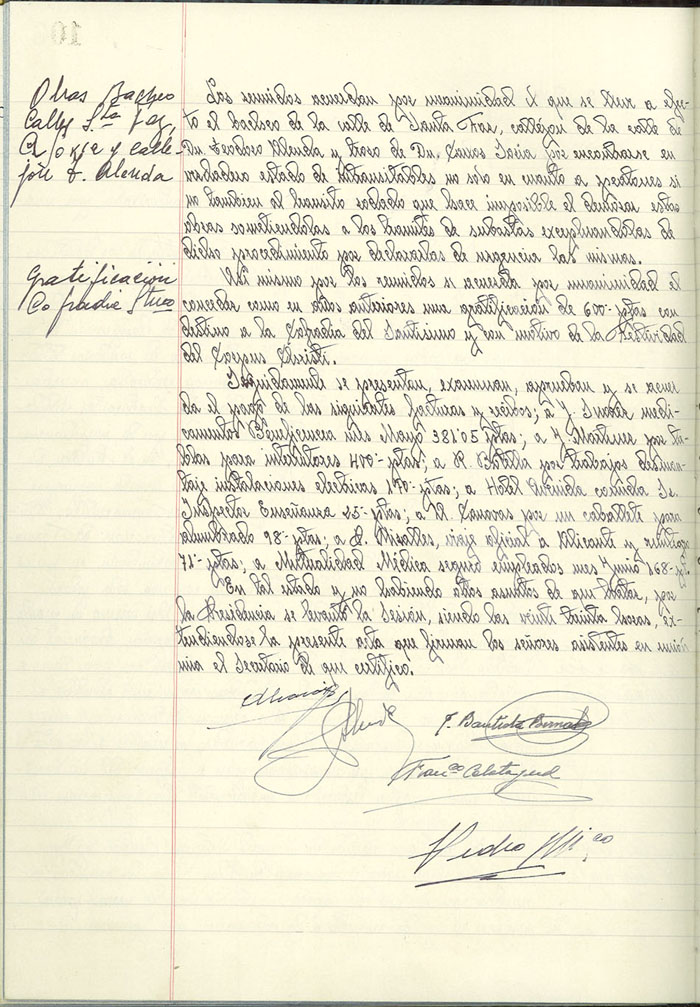 Obras Bacheo
Calles Sta Faz,
C. Jorge y calle
José T. Alenda
Los reunidos acuerdan por unanimidad el que se lleve a efec-
to el bacheo de la calle de Santa Faz, callejón de la calle de
Dn. Teodoro Alenda y trozo de Dn. por encontrarse en
verdadero estado de intransitables no solo en cuanto a peatones si
no tambien al transito rodado que hace imposible el estas
obras sometiendolas a los tramites de subastas exceptuandolas de
dicho procedimiento por declararlas de urgencia las mismas.
Gratificación
Cofradia Stmo
Asi mismo por los reunidos se acuerda por unanimidad el
conceder como en años anteriores una gratificación de 600- ptas con
destino a la Cofradia del Santisimo y con motivo de la Festividad
del Corpus Christi.
Seguidamente se presentan, examinan, aprueban y se acuer-
da el pago de las siguientes facturas y recibos; a J. medi-
camentos Beneficencia mes Mayo 381'05 ptas; a J. Martinez por ta-
blas para interruptores 400- ptas; a R. Botella por trabajos desmon-
taje instalaciones electricas 170- ptas; a Hotel Avenida comida Sr.
Inspector Enseñanza 25- ptas; a R. Canovas por un caballete para
alumbrado 98- ptas; a Miralles, viaje oficial a Alicante y
71- ptas; a Mutualidad Médica seguro empleados mes Junio 168- pt.
En tal estado y no habiendo otros asuntos de que tratar, por
la Presidencia se levantó la Sesión, siendo las veinte treinta horas, ex-
tendiendose la presente acta que firman los señores asistentes en unión
mia el Secretario de que certifico.
Alenda
F. Bautista Bernabe
Franco Calatayud
Pedro Mico